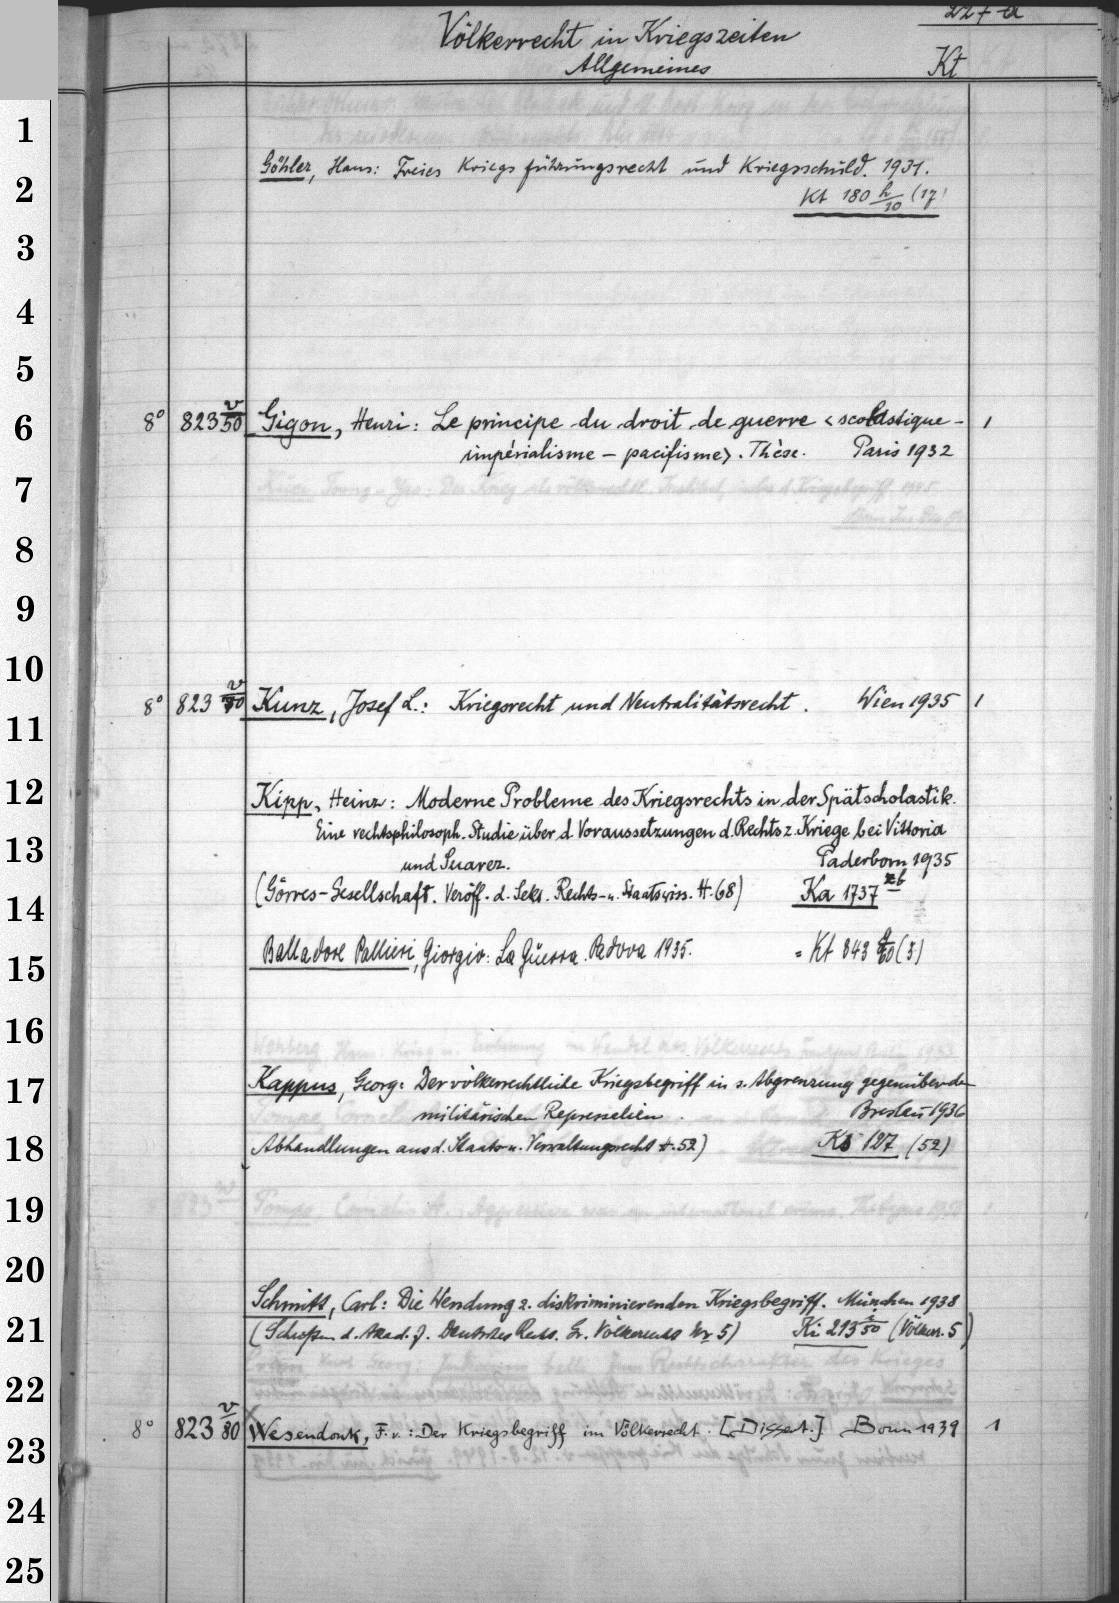 227 a
Völkerrecht in Kriegszeiten
Allgemeines Kt
1
Göhler, Hans: Freies Kriegsführungsrecht und Kriegsschuld. 1931.
2
Kt 180 h/10 (17)
3
4
5
6
8° 823 v/50 Gigon, Henri: Le principe du droit de guerre <scolastique - 1
impérialisme - pacifisme>. Thèse. Paris 1932
7
8
9
10
8° 823 v/70 Kunz, Josef L.: Kriegsrecht und Neutralitätsrecht. Wien 1935 1
11
12
Kipp, Heinz: Moderne Probleme des Kriegsrechts in der Spätscholastik.
Eine rechtsphilosoph. Studie über d Voraussetzungen d. Rechts z. Kriege bei Vittoria
13
und Suarez. Paderborn 1935
(Görres-Gesellschaft. Veröff. d. Sekt. Rechts- u. Staatswiss. H. 68) Ka 1737 zb
14
Balladore Pallieri, Giorgio: La Guerra. Padova 1935. = Kt 843 (3)
15
16
17
Kappus, Georg: Der völkerrechtliche Kriegsbegriff in s. Abgrenzung gegenüber den
militärischen Repressalien. Breslau 1936
18
Abhandlungen aus d. Staats- u. Verwaltungsrecht H. 52) Ks 127 (52)
19
20
Schmitt, Carl: Die Wendung z. diskriminierenden Kriegsbegriff. München 1938
21
(Schriften d. Akad. f. Deutsches Recht. Gr. Völkerrecht Nr 5) Ki 293 i/50 (Völkerr. 5)
22
8° 823 v/80 Wesendonk, F. v.: Der Kriegsbegriff im Völkerrecht. [Dissert.] Bonn 1939 1
23
24
25